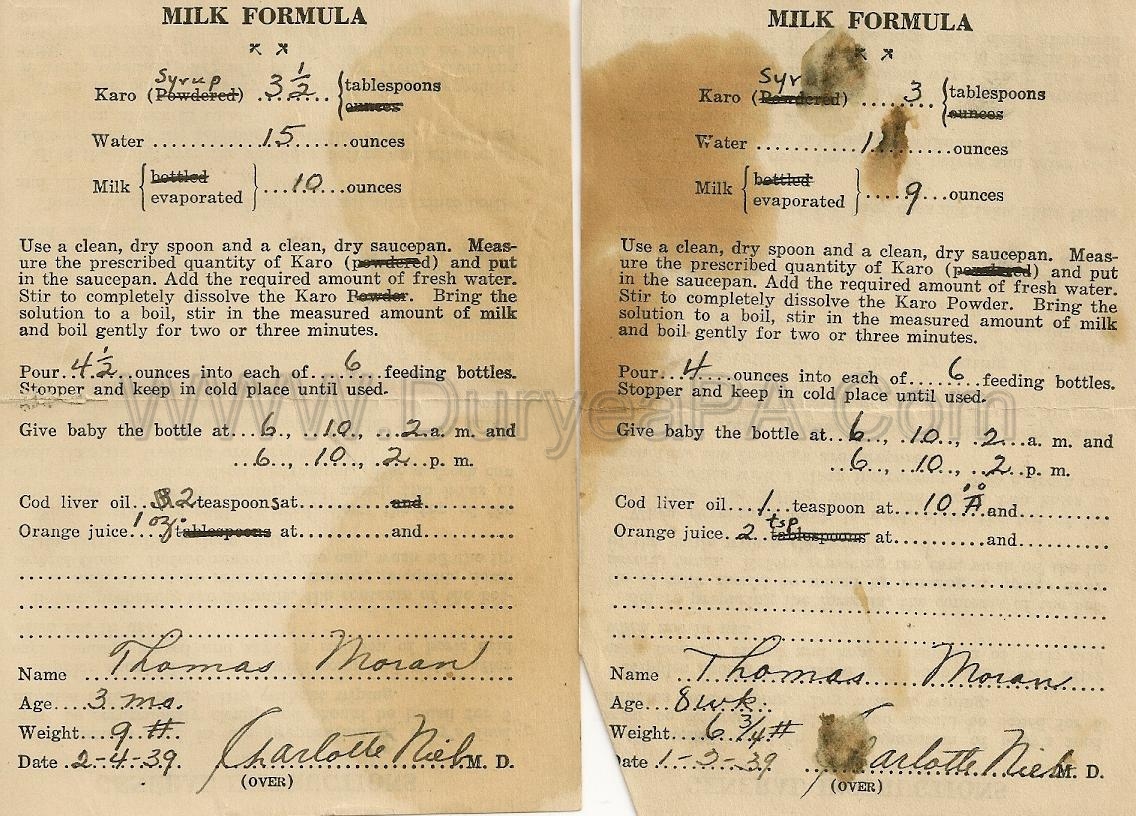 MILK FORMULA
Syrup
Karo (Powdered) ........ 3 1/2 tablespoons
ounces
Water ............ 15 ......ounces
Milk { bottled
evaporated } ... 10 ...ounces
Use a clean, dry spoon and a clean, dry saucepan. Meas-
ure the prescribed quantity of Karo (powdered) and put
in the saucepan. Add the required amount of fresh water.
Stir to completely dissolve the Karo Powder. Bring the
solution to a boil, stir in the measured amount of milk
and boil gently for two or three minutes.
Pour.. 4 1/2 ..ounces into each of.... 6 ....feeding bottles.
Stopper and keep in cold place until used.
Give baby the bottle at... 6 .., .. 10 .., ... 2 ...a. m. and
... 6 .., .. 10 .., .. 2 ...p. m.
Cod liver oil... 2 teaspoons at............ and............
Orange juice... 1 oz. tablespoons at............and............
Name Thomas Moran
Age... 3 mo.
Weight... 9 #.
Date 2-4-39 Charlotte Nieb M. D.
(OVER)
MILK FORMULA
Syr
Karo (Powdered) ...... 3 { tablespoons
ounces
Water ........... 1 ........ounces
Milk { bottled
evaporated } .... 9 ...ounces
Use a clean, dry spoon and a clean, dry saucepan. Meas-
ure the prescribed quantity of Karo (powdered) and put
in the saucepan. Add the required amount of fresh water.
Stir to completely dissolve the Karo Powder. Bring the
solution to a boil, stir in the measured amount of milk
and boil gently for two or three minutes.
Pour... 4 ....ounces into each of...... 6 ..feeding bottles.
Stopper and keep in cold place until used.
Give baby the bottle at... 6 .., . 10 .., . 2 ...a. m. and
. 6 .., . 10 .., .. 2 ..p. m.
Cod liver oil... 1 ... teaspoon at.... 10 A ..and............
Orange juice.. 2 .. tsp tablespoons at............and............
Name Thomas Moran
Age... 8 wk.
Weight... 6 3/4 #
ate 1-2-39 arlotte Nieb M. D.
(OVER)
www.DuryeaPA.Com